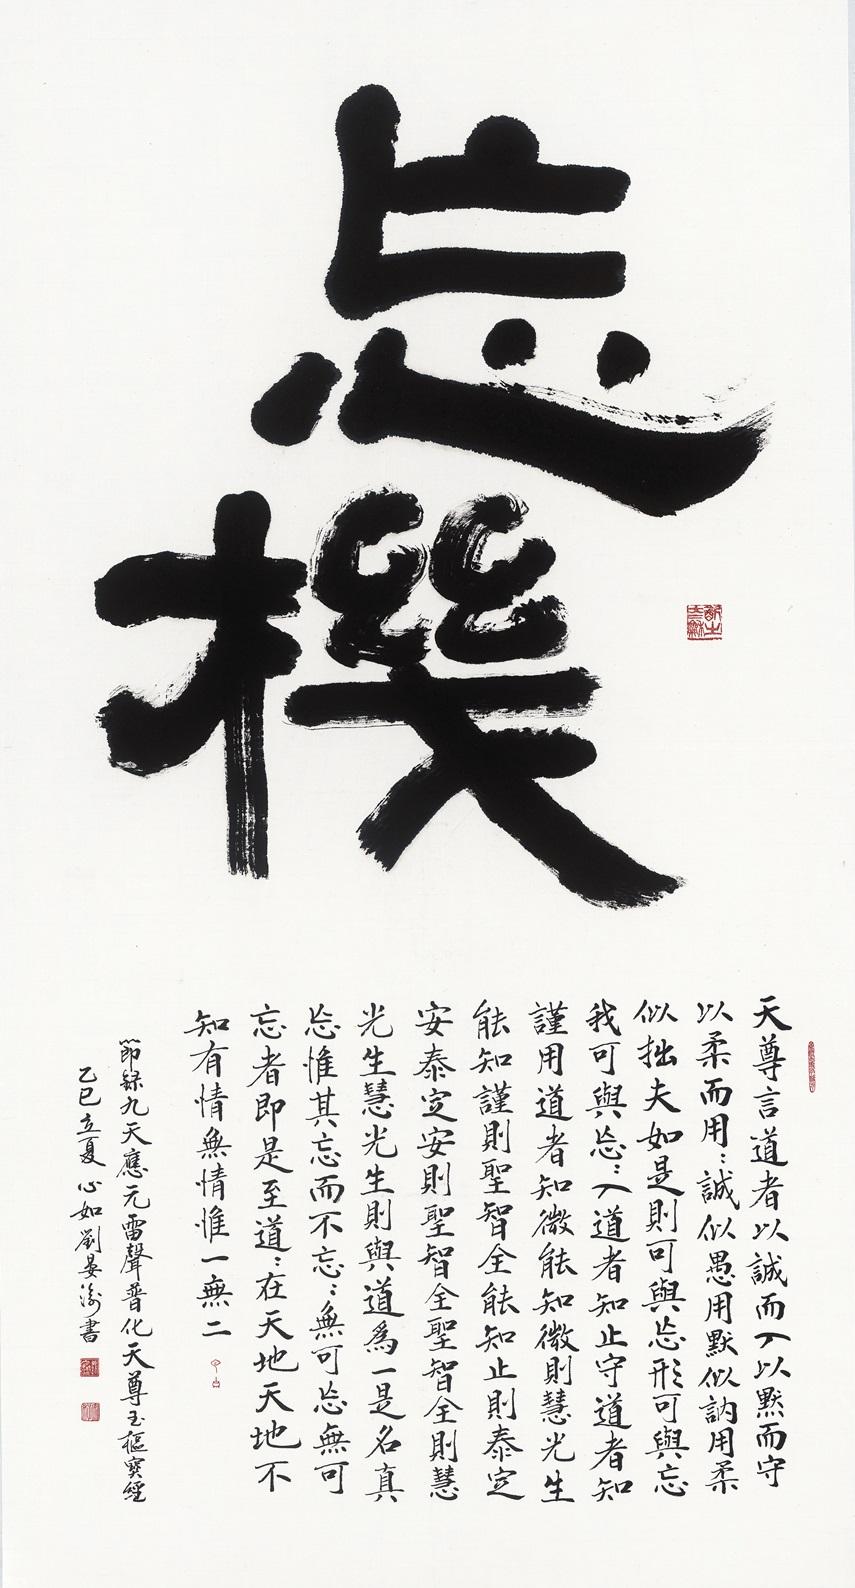 忘機
天尊言道者以誠而入以默而守
以柔而用〻誠似愚用默似訥用柔
似拙夫如是則可與忘形可與忘
我可與忘〻入道者知止守道者知
謹用道者知微能知微則慧光生
能知謹則聖智全能知止則泰定
安泰定安則聖智全聖智全則慧
光生慧光生則與道為一是名真
忘惟其忘而不忘〻無可忘無可
忘者即是至道〻在天地天地不
知有情無情惟一無二
節錄九天應元雷聲普化天尊玉樞寶經
乙巳立夏心如劉晏濤書